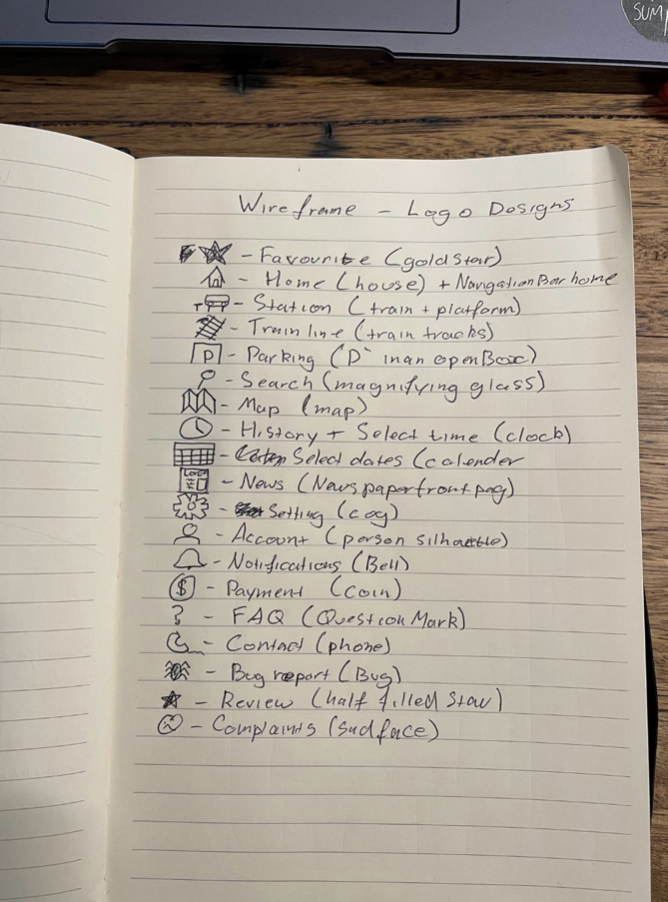 SUM
Wireframe - Logo Designs
- Favourite (gold star)
- Home (house) + Navigation Bar home
- Station (train + platform)
- Train line (train tracks)
P - Parking (P inan open Box)
- Search (magnifying glass)
- Map (map)
- History + Select time (clock)
- Select dates (calender
- News (Newspaper front pag)
- Setting (cog)
- Account (person silhouette)
- Notifications (Bell)
$ - Payment (coin)
? - FAQ (Question Mark)
- Contact (phone)
- Bug report (Bug)
- Review (half filled star)
- Complaints (sad face)